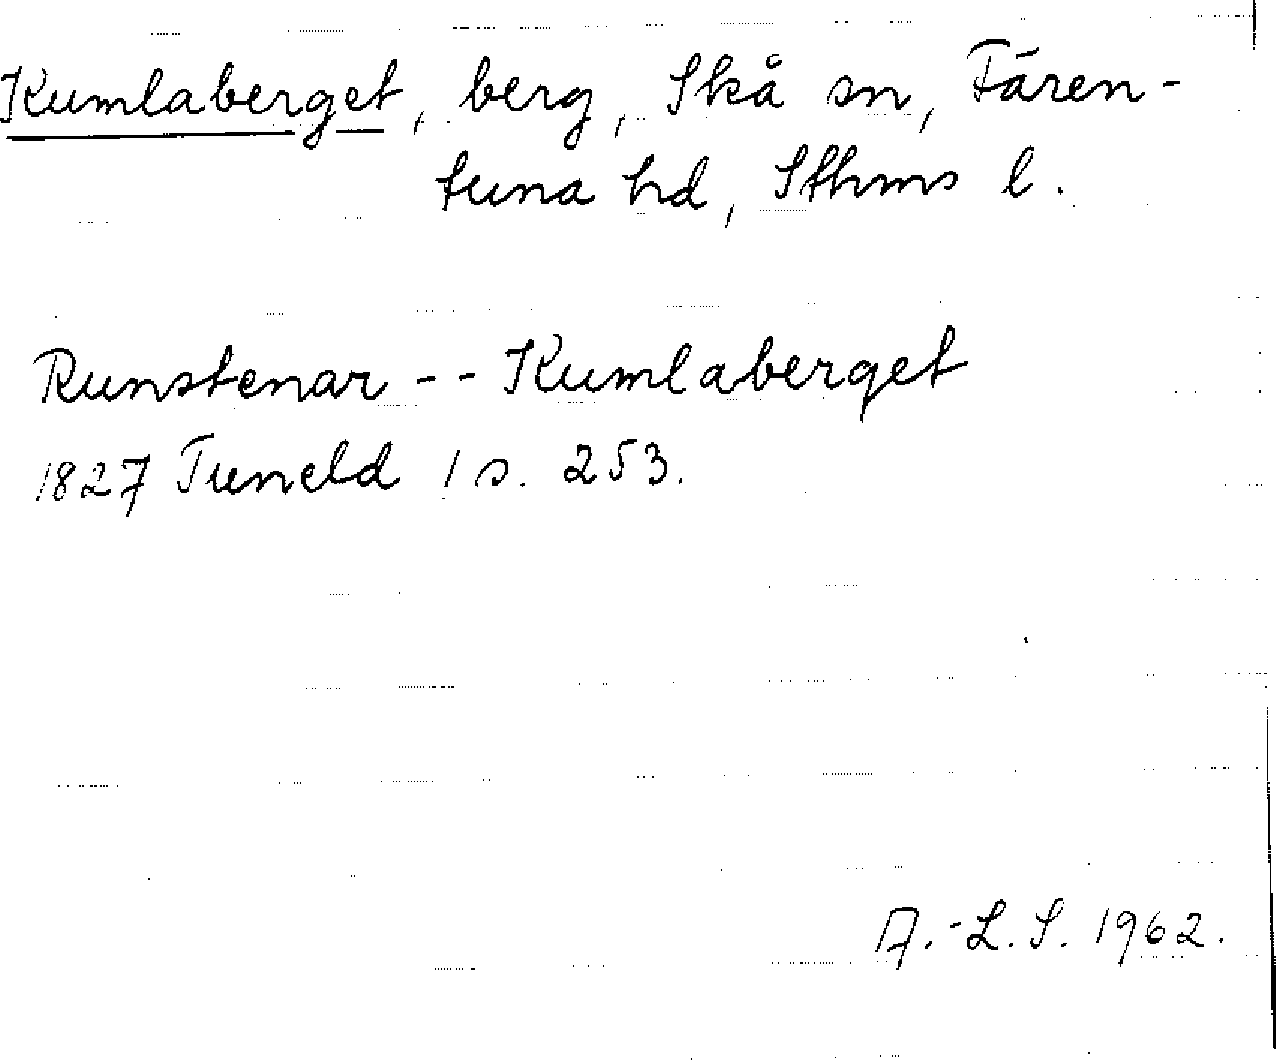 Kumlaberget, berg, Skå sn, Fären-
tuna hd, Sthms l.
Runstenar - - Kumlaberget
1827 Tuneld 1 s. 253.
A.-L. S. 1962.